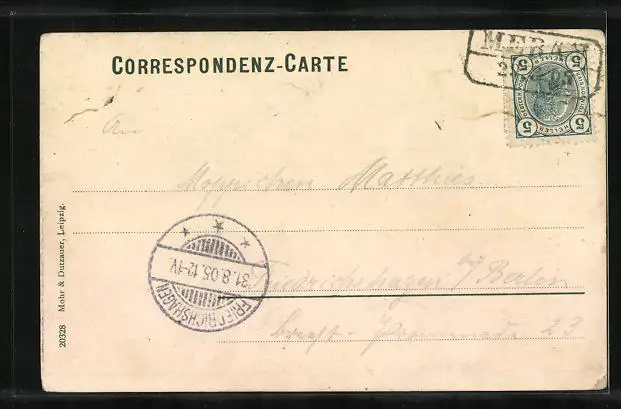 CORRESPONDENZ-CARTE
MERAN
5 5
HELLER HELLER
5 5
An
Matthies
FRIEDRICHSHAGEN
31.8.05.12-1V.
Friedrichshagen b/ Berlin
Promenade 23
20328 Mohr & Dutzauer, Leipzig.